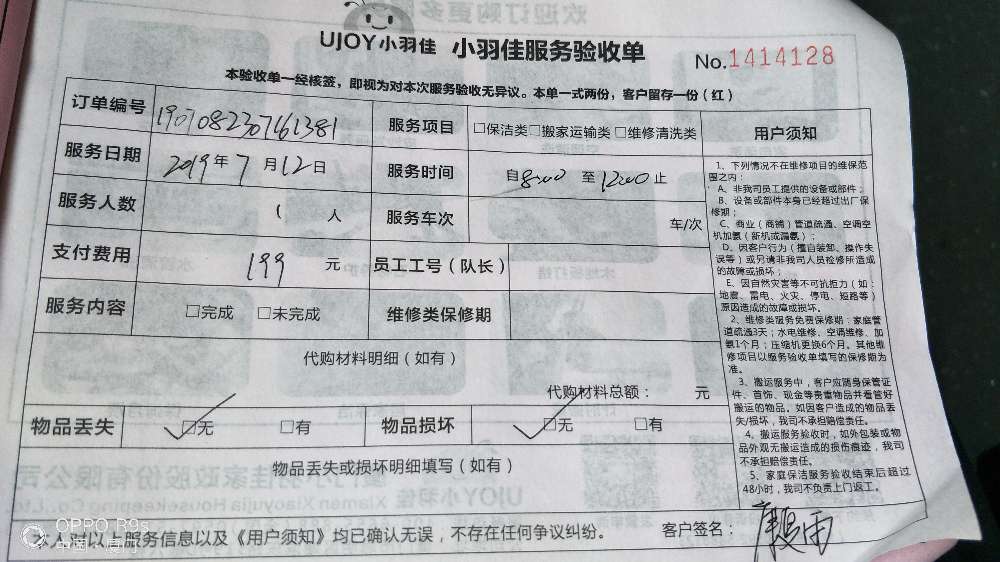 UJOY小羽佳 小羽佳服务验收单
No.1414128
本验收单一经核签，即视为对本次服务验收无异议。本单一式两份，客户留存一份（红）
订单编号
服务项目 □保洁类□搬家运输类□维修清洗类
服务日期 2019年7月12日
服务时间 自8:00至12:00止
服务人数 1人
服务车次 车/次
支付费用 199元
员工工号（队长）
服务内容 □完成 □未完成
维修类保修期
代购材料明细（如有）
代购材料总额： 元
物品丢失 □无 □有
物品损坏 □无 □有
物品丢失或损坏明细填写（如有）
本人对以上服务信息以及《用户须知》均已确认无误，不存在任何争议纠纷。
客户签名：
用户须知
1、下列情况不在维修项目的维保范
围之内：
A、非我司员工提供的设备或部件；
B、设备或部件本身已经超过出厂保
修期；
C、商业（商铺）管道疏通、空调空
机加氨（新机或漏氨）；
D、因客户行为（擅自装卸、操作失
误等）或另请非我司人员检修所造成
的故障或损坏；
E、因自然灾害等不可抗拒力（如：
地震、雷电、火灾、停电、短路等）
原因造成的故障或损坏。
2、维修类服务免费保修期：家庭管
道疏通3天；水电维修、空调维修、加
氨1个月；压缩机更换6个月。其他维
修项目以服务验收单填写的保修期为
准。
3、搬运服务中，客户应随身保管证
件、首饰、现金等贵重物品并看管好
搬运的物品。如因客户造成的物品丢
失/损坏，我司不承担赔偿责任。
4、搬运服务验收时，如外包装或物
品外观无搬运造成的损伤痕迹，我司
不承担赔偿责任。
5、家庭保洁服务验收结束后超过
48小时，我司不负责上门返工。
OPPO R9s